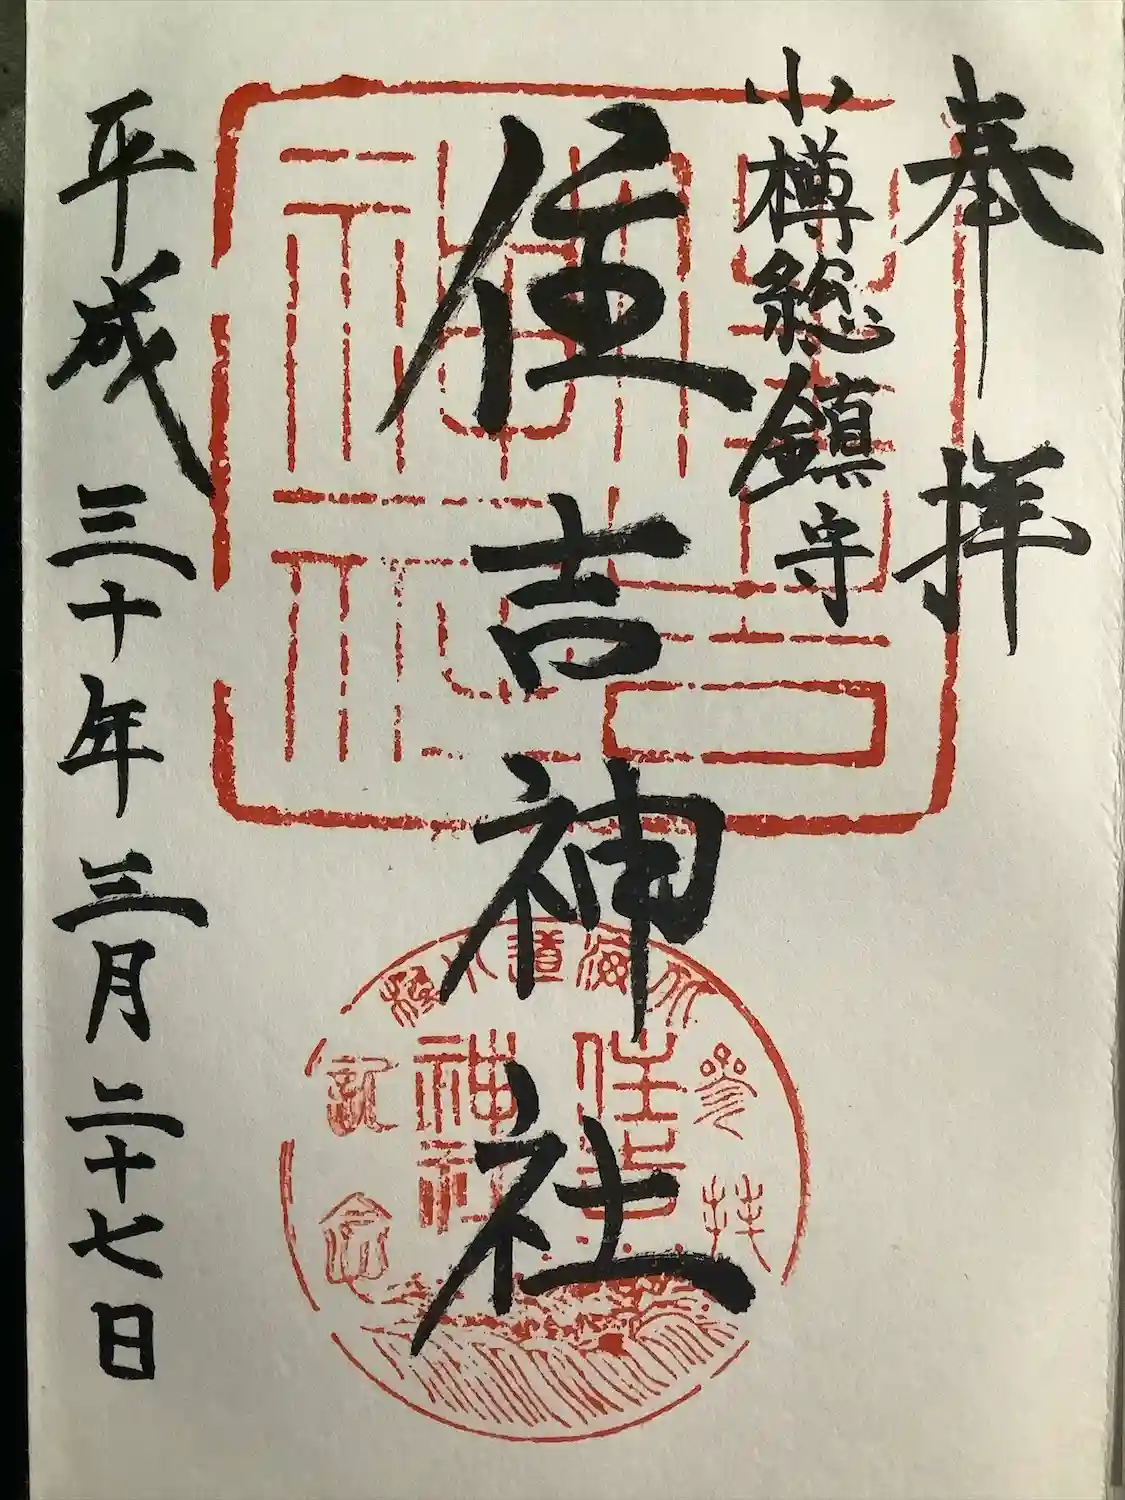 奉拝
小樽総鎮守
住吉神社
平成三十年三月二十七日
住吉神社
北海道小樽
住吉
神社
参拝
記念